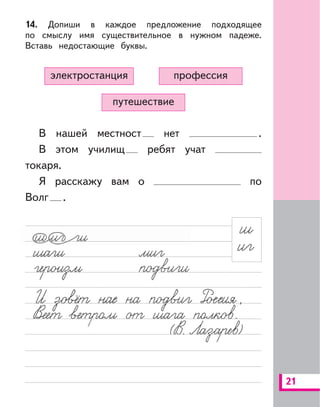 14. Допиши в каждое предложение подходящее
по смыслу имя существительное в нужном падеже.
Вставь недостающие буквы.
электростанция профессия
путешествие
В нашей местност__ нет ____________.
В этом училищ__ ребят учат ________
токаря.
Я расскажу вам о ________________ по
Волг__.
ш
шиг ги
иг
шаги миг
героизм подвиги
И зовёт нас на подвиг Россия,
Веет ветром от шага полков.
(В. Лазарев)
21